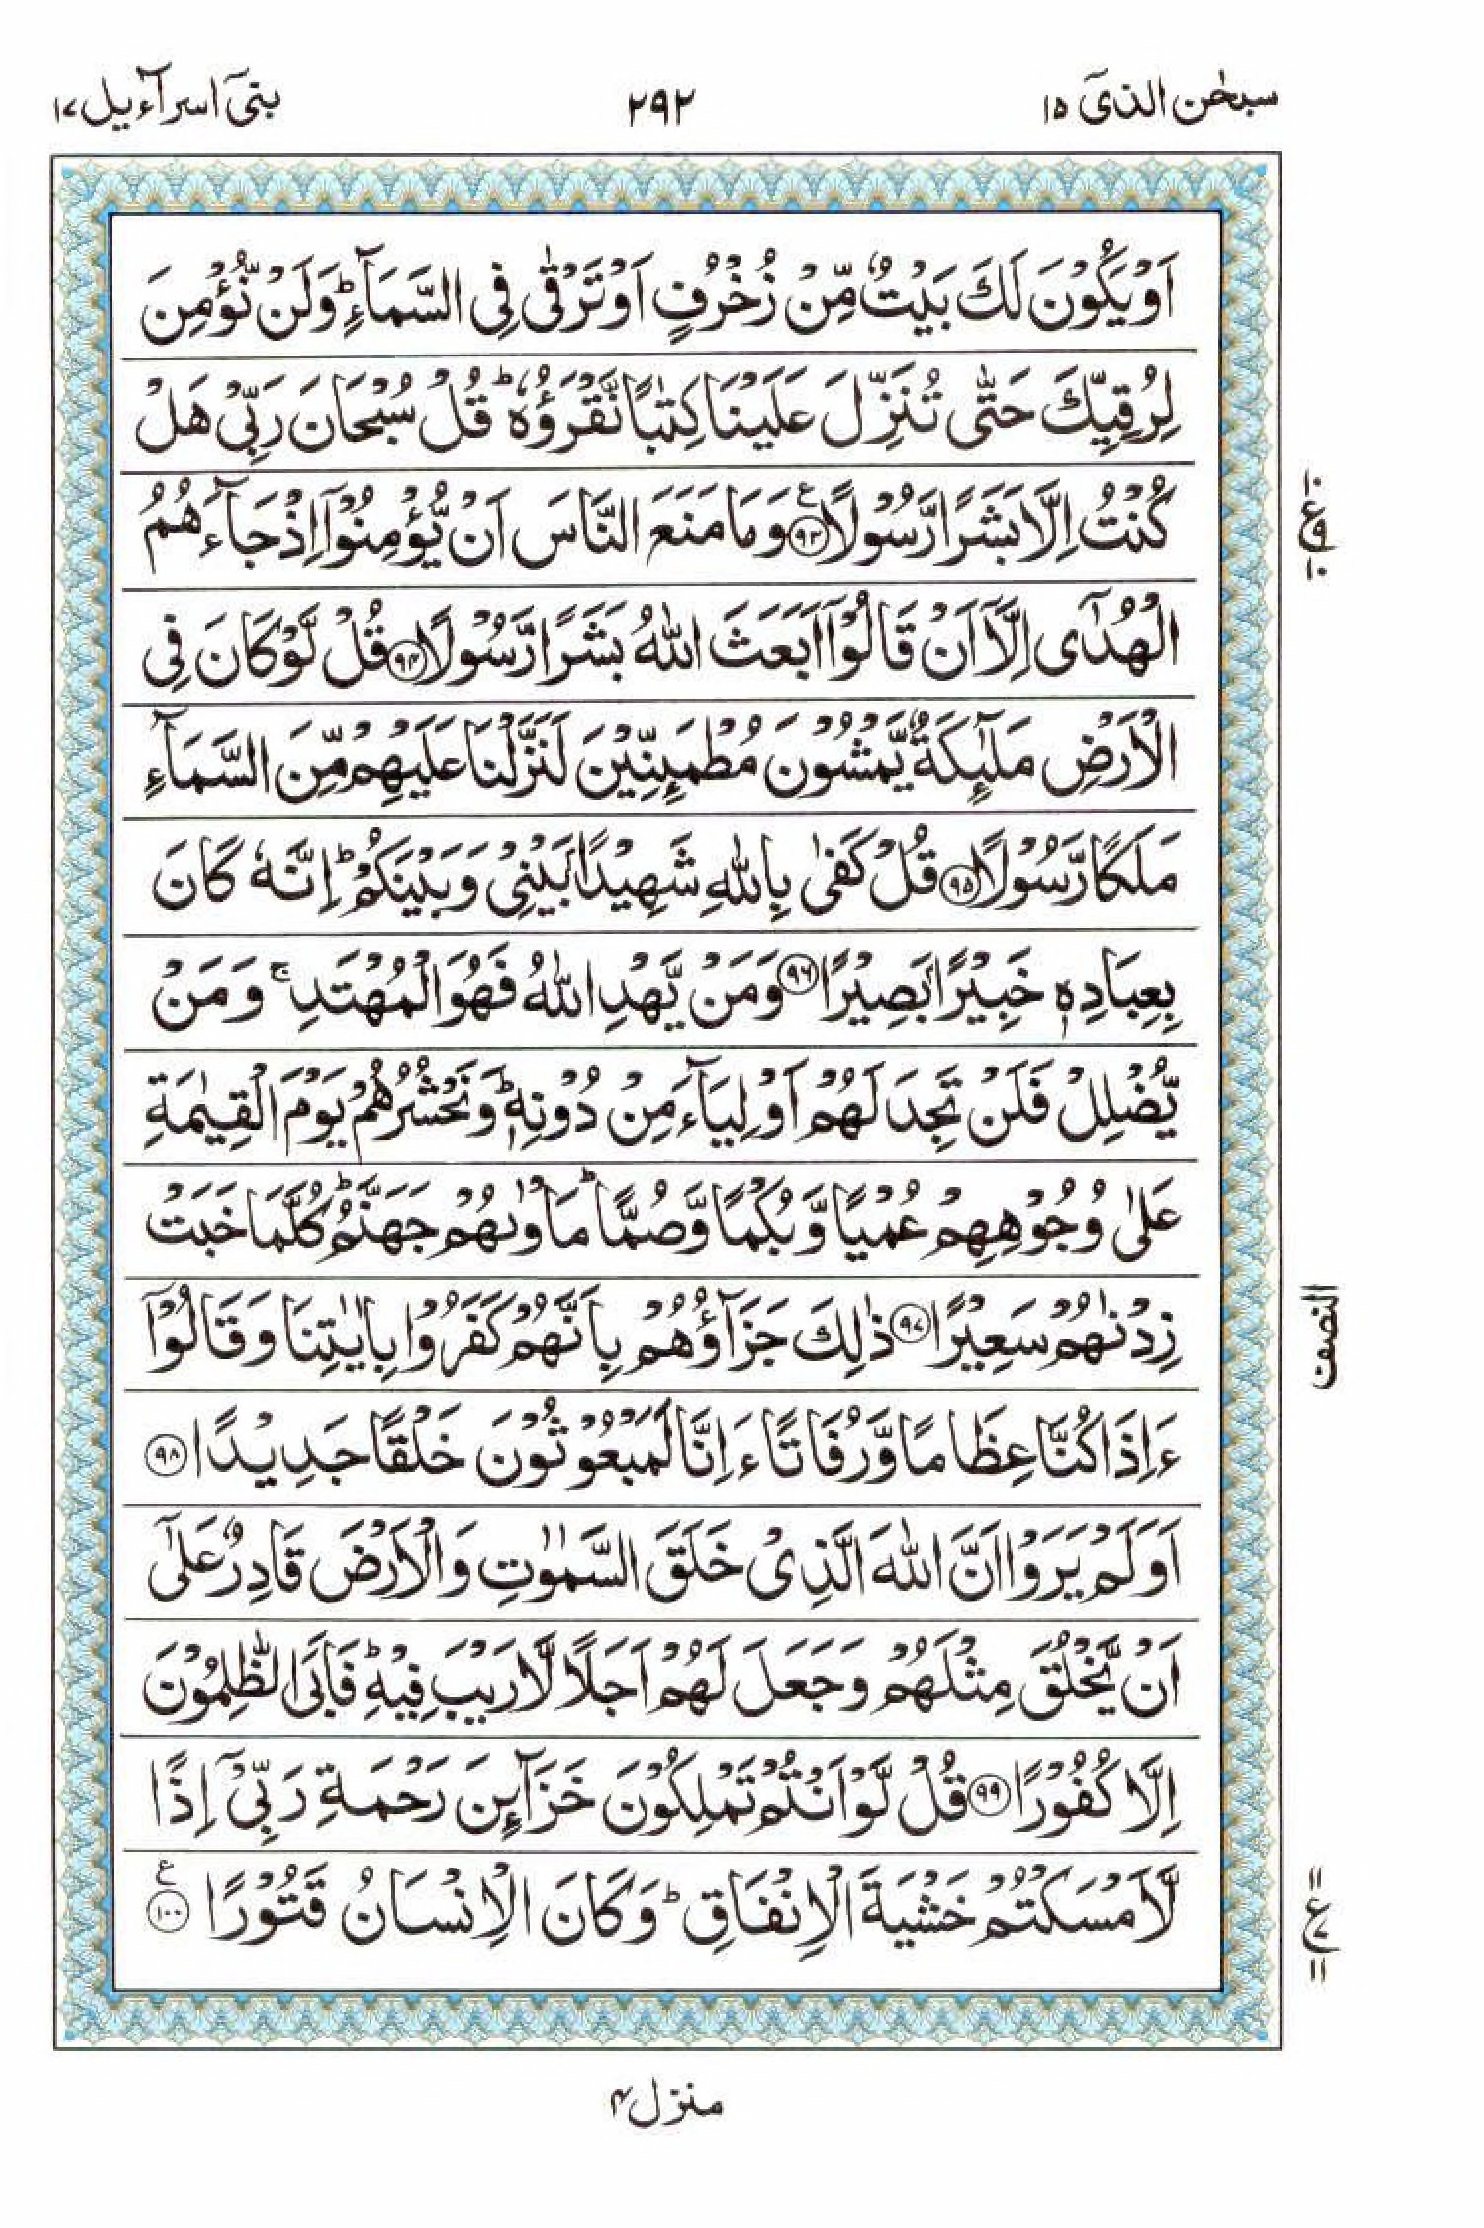 سبحٰن الذیٓ ١٥
٢٩٢
بنیٓ اسرآءیل ١٧
اَوْ یَكُوْنَ لَكَ بَیْتٌ مِّنْ زُخْرُفٍ اَوْ تَرْقٰى فِی السَّمَآءِؕ وَلَنْ نُّؤْمِنَ
لِرُقِیِّكَ حَتّٰى تُنَزِّلَ عَلَیْنَا كِتٰبًا نَّقْرَؤُهٗؕ قُلْ سُبْحَانَ رَبِّیْ هَلْ
كُنْتُ اِلَّا بَشَرًا رَّسُوْلًا ﴿٩٣﴾ ع وَمَا مَنَعَ النَّاسَ اَنْ یُّؤْمِنُوْۤا اِذْ جَآءَهُمُ
الْهُدٰۤى اِلَّاۤ اَنْ قَالُوْۤا اَبَعَثَ اللّٰهُ بَشَرًا رَّسُوْلًا ﴿٩٤﴾ قُلْ لَّوْ كَانَ فِی
الْاَرْضِ مَلٰٓىِٕكَةٌ یَّمْشُوْنَ مُطْمَىِٕنِّیْنَ لَنَزَّلْنَا عَلَیْهِمْ مِّنَ السَّمَآءِ
مَلَكًا رَّسُوْلًا ﴿٩٥﴾ قُلْ كَفٰى بِاللّٰهِ شَهِیْدًۢا بَیْنِیْ وَبَیْنَكُمْؕ اِنَّهٗ كَانَ
بِعِبَادِهٖ خَبِیْرًۢا بَصِیْرًا ﴿٩٦﴾ وَمَنْ یَّهْدِ اللّٰهُ فَهُوَ الْمُهْتَدِۚ وَمَنْ
یُّضْلِلْ فَلَنْ تَجِدَ لَهُمْ اَوْلِیَآءَ مِنْ دُوْنِهٖؕ وَنَحْشُرُهُمْ یَوْمَ الْقِیٰمَةِ
عَلٰى وُجُوْهِهِمْ عُمْیًا وَّبُكْمًا وَّصُمًّاؕ مَاْوٰىهُمْ جَهَنَّمُؕ كُلَّمَا خَبَتْ
زِدْنٰهُمْ سَعِیْرًا ﴿٩٧﴾ ذٰلِكَ جَزَآؤُهُمْ بِاَنَّهُمْ كَفَرُوْا بِاٰیٰتِنَا وَقَالُوْۤا
ءَاِذَا كُنَّا عِظَامًا وَّرُفَاتًا ءَاِنَّا لَمَبْعُوْثُوْنَ خَلْقًا جَدِیْدًا ﴿٩٨﴾
اَوَلَمْ یَرَوْا اَنَّ اللّٰهَ الَّذِیْ خَلَقَ السَّمٰوٰتِ وَالْاَرْضَ قَادِرٌ عَلٰۤى
اَنْ یَّخْلُقَ مِثْلَهُمْ وَجَعَلَ لَهُمْ اَجَلًا لَّا رَیْبَ فِیْهِؕ فَاَبَى الظّٰلِمُوْنَ
اِلَّا كُفُوْرًا ﴿٩٩﴾ قُلْ لَّوْ اَنْتُمْ تَمْلِكُوْنَ خَزَآىِٕنَ رَحْمَةِ رَبِّیْۤ اِذًا
لَّاَمْسَكْتُمْ خَشْیَةَ الْاِنْفَاقِؕ وَكَانَ الْاِنْسَانُ قَتُوْرًا ﴿١٠٠﴾ ع
١٠
ع ٩
١٠
النصف
١١
ع ٧
١١
منزل ٤